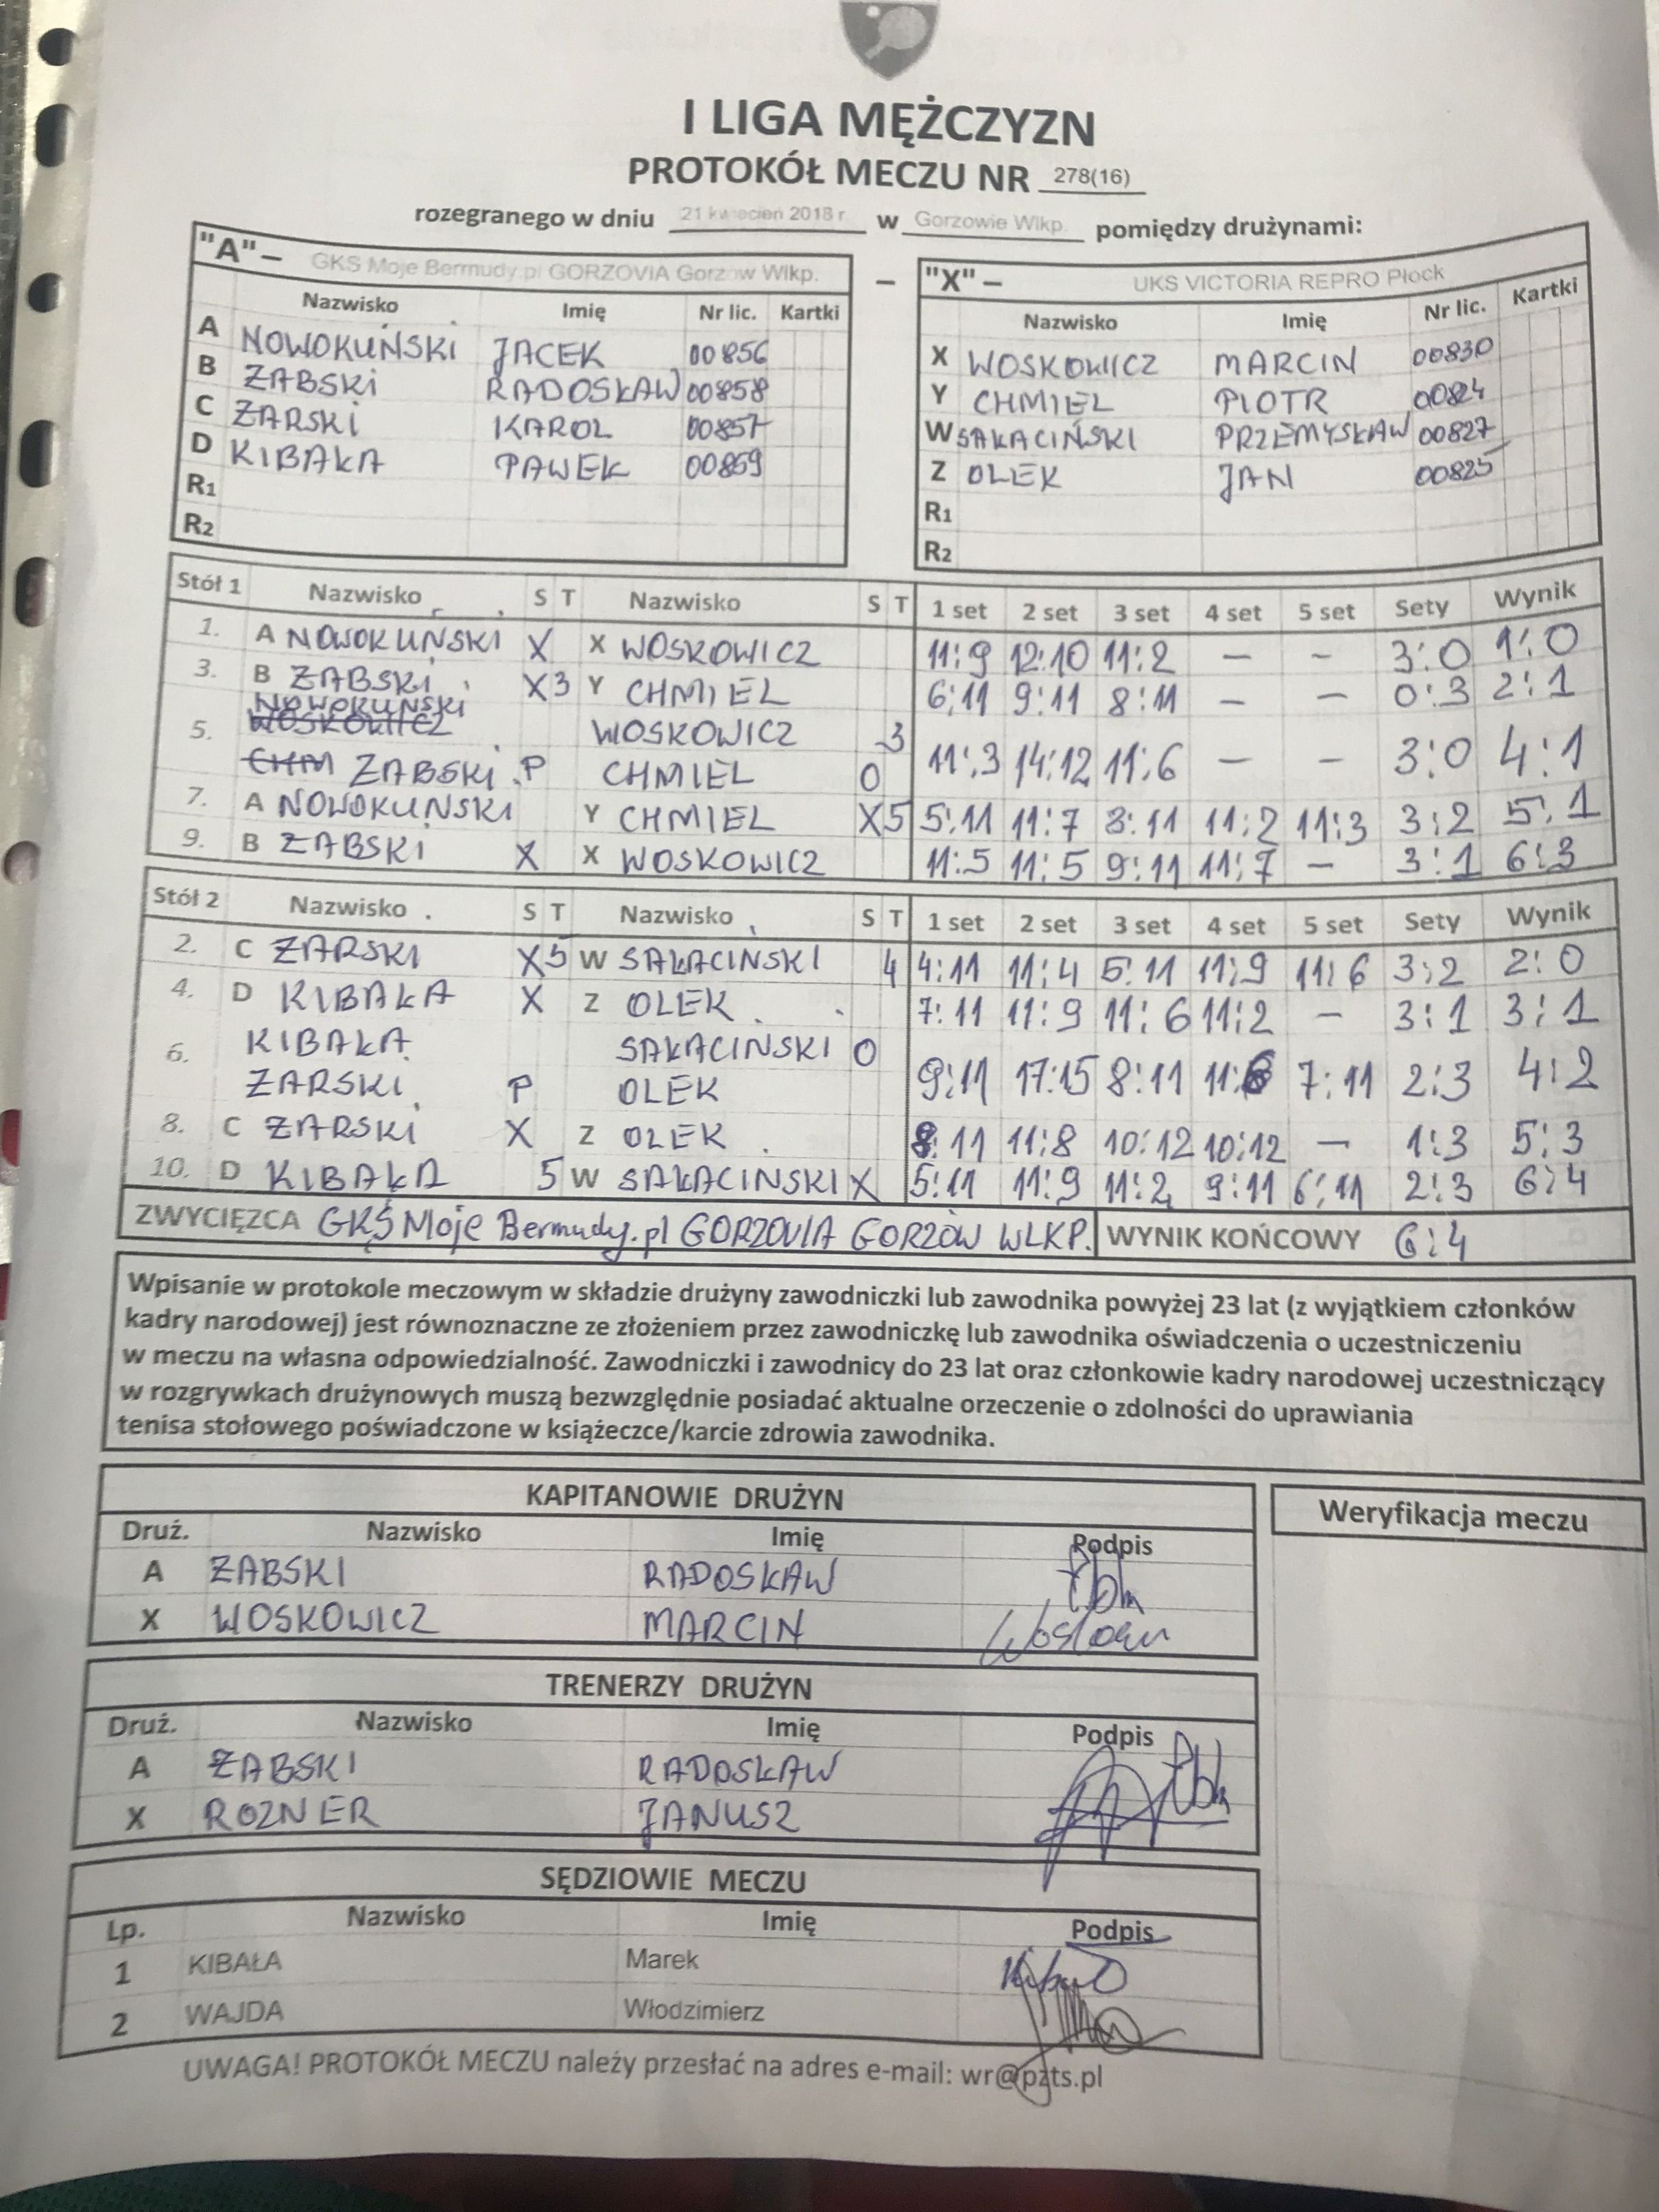 I LIGA MĘŻCZYZN
PROTOKÓŁ MECZU NR 278(16)
rozegranego w dniu 21 kwiecień 2018 r. w Gorzowie Wlkp. pomiędzy drużynami:
"A"– GKS Moje Bermudy.pl GORZOVIA Gorzów Wlkp. – "X"– UKS VICTORIA REPRO Płock
Nazwisko Imię Nr lic. Kartki Nazwisko Imię Nr lic. Kartki
A NOWOKUŃSKI JACEK 00856 X WOSKOWICZ MARCIN 00830
B ŻABSKI RADOSŁAW 00858 Y CHMIEL PIOTR 00824
C ŻARSKI KAROL 00857 W SAŁACIŃSKI PRZEMYSŁAW 00827
D KIBAŁA PAWEŁ 00859 Z OLEK JAN 00825
R1 R1
R2 R2
Stół 1 Nazwisko S T Nazwisko S T 1 set 2 set 3 set 4 set 5 set Sety Wynik
1. A NOWOKUŃSKI X X WOSKOWICZ 11:9 12:10 11:2 – – 3:0 1:0
3. B ŻABSKI X 3 Y CHMIEL 6:11 9:11 8:11 – – 0:3 2:1
NOWOKUŃSKI
5. WOSKOWICZ WOSKOWICZ 3 11:3 14:12 11:6 – – 3:0 4:1
CHM ŻABSKI P CHMIEL O
7. A NOWOKUŃSKI Y CHMIEL X 5 5:11 11:7 8:11 11:2 11:3 3:2 5:1
9. B ŻABSKI X X WOSKOWICZ 11:5 11:5 9:11 11:7 – 3:1 6:3
Stół 2 Nazwisko S T Nazwisko S T 1 set 2 set 3 set 4 set 5 set Sety Wynik
2. C ŻARSKI X 5 W SAŁACIŃSKI 4 4:11 11:4 5:11 11:9 11:6 3:2 2:0
4. D KIBAŁA X Z OLEK 7:11 11:9 11:6 11:2 – 3:1 3:1
6. KIBAŁA SAŁACIŃSKI O 9:11 17:15 8:11 11:6 7:11 2:3 4:2
ŻARSKI P OLEK
8. C ŻARSKI X Z OLEK 8:11 11:8 10:12 10:12 – 1:3 5:3
10. D KIBAŁA 5 W SAŁACIŃSKI X 5:11 11:9 11:2 9:11 6:11 2:3 6:4
ZWYCIĘZCA GKS Moje Bermudy.pl GORZOVIA GORZÓW WLKP. WYNIK KOŃCOWY 6:4
Wpisanie w protokole meczowym w składzie drużyny zawodniczki lub zawodnika powyżej 23 lat (z wyjątkiem członków
kadry narodowej) jest równoznaczne ze złożeniem przez zawodniczkę lub zawodnika oświadczenia o uczestniczeniu
w meczu na własna odpowiedzialność. Zawodniczki i zawodnicy do 23 lat oraz członkowie kadry narodowej uczestniczący
w rozgrywkach drużynowych muszą bezwzględnie posiadać aktualne orzeczenie o zdolności do uprawiania
tenisa stołowego poświadczone w książeczce/karcie zdrowia zawodnika.
KAPITANOWIE DRUŻYN Weryfikacja meczu
Druż. Nazwisko Imię Podpis
A ŻABSKI RADOSŁAW
X WOSKOWICZ MARCIN
TRENERZY DRUŻYN
Druż. Nazwisko Imię Podpis
A ŻABSKI RADOSŁAW
X ROZNER JANUSZ
SĘDZIOWIE MECZU
Lp. Nazwisko Imię Podpis
1 KIBAŁA Marek
2 WAJDA Włodzimierz
UWAGA! PROTOKÓŁ MECZU należy przesłać na adres e-mail: wr@pzts.pl